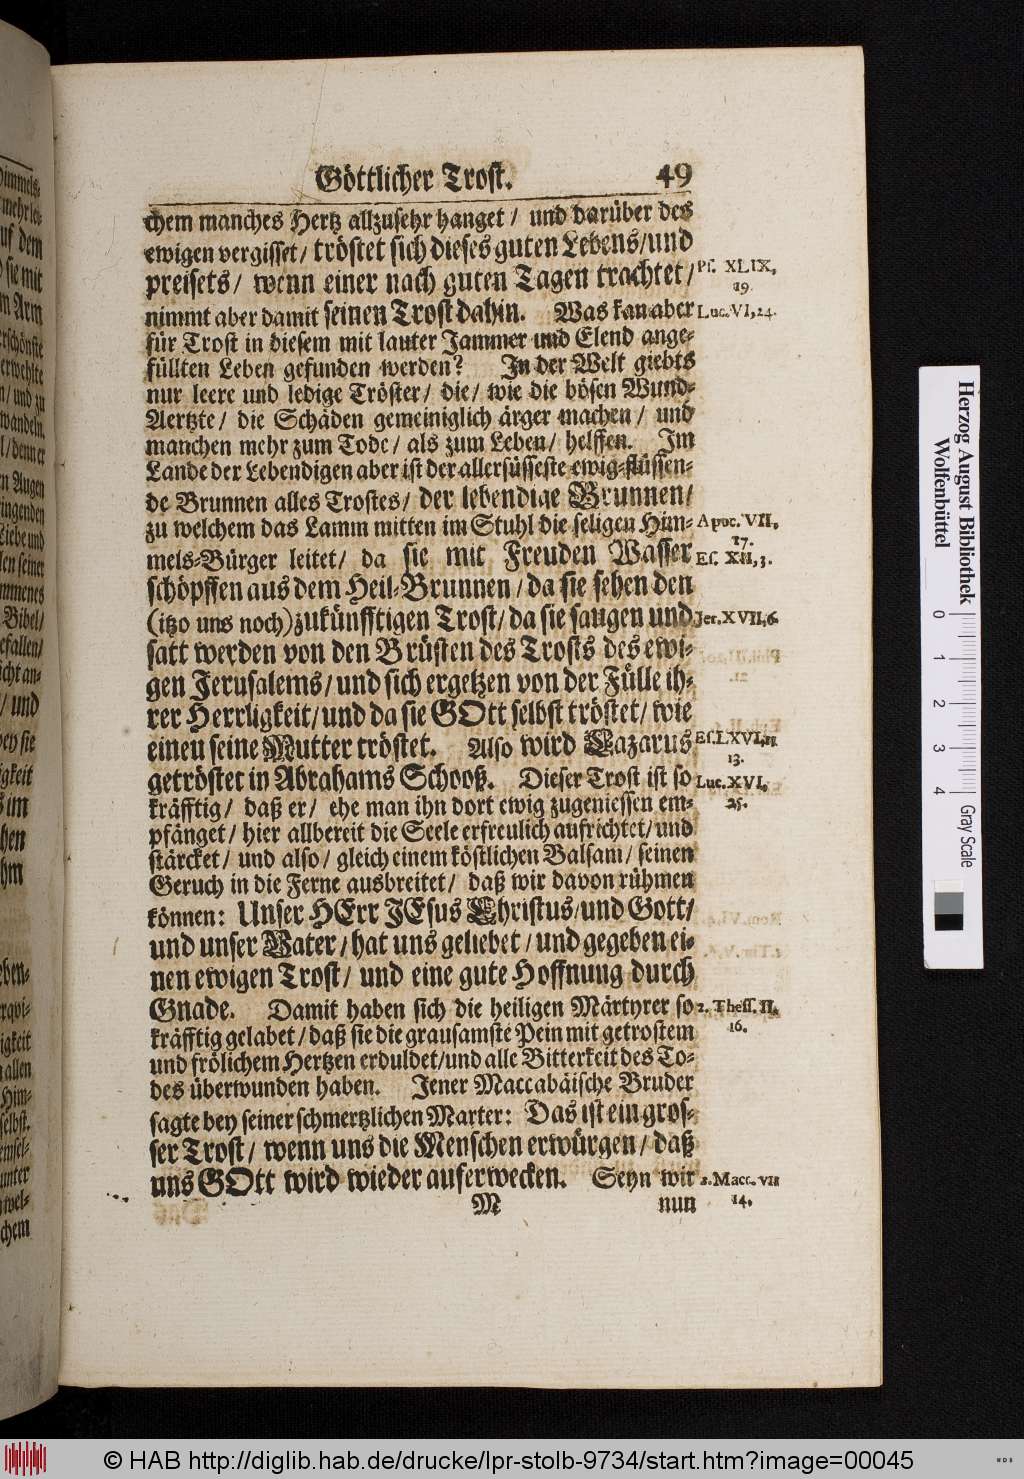 Göttlicher Trost. 49
chem manches Hertz allzusehr hanget / und darüber des
ewigen vergisset / tröstet sich dieses guten Lebens / und
preisets / wenn einer nach guten Tagen trachtet /
Ps. XLIX,
19.
nimmt aber damit seinen Trost dahin. Was kan aber
Luc. VI, 24.
für Trost in diesem mit lauter Jammer und Elend ange-
füllten Leben gefunden werden? In der Welt giebts
nur leere und ledige Tröster / die / wie die bösen Wund-
Aertzte / die Schäden gemeiniglich ärger machen / und
manchen mehr zum Tode / als zum Leben / helffen. Im
Lande der Lebendigen aber ist der allersüsseste ewig-flüssen-
de Brunnen alles Trostes / der lebendige Brunnen /
zu welchem das Lamm mitten im Stuhl die seligen Him-
Apoc. VII,
17.
mels-Bürger leitet / da sie mit Freuden Wasser
Es. XII, 3.
schöpffen aus dem Heil-Brunnen / da sie sehen den
(itzo uns noch) zukünfftigen Trost / da sie saugen und
Jer. XVII, 6.
satt werden von den Brüsten des Trosts des ewi-
gen Jerusalems / und sich ergetzen von der Fülle ih-
rer Herrligkeit / und da sie GOtt selbst tröstet / wie
einen seine Mutter tröstet. Also wird Lazarus
Es. LXVI, 11
13.
getröstet in Abrahams Schooß. Dieser Trost ist so
Luc. XVI,
25.
kräfftig / daß er / ehe man ihn dort ewig zugeniessen em-
pfänget / hier allbereit die Seele erfreulich aufrichtet / und
stärcket / und also / gleich einem köstlichen Balsam / seinen
Geruch in die Ferne ausbreitet / daß wir davon rühmen
können: Unser HErr JEsus Christus / und Gott /
und unser Vater / hat uns geliebet / und gegeben ei-
nen ewigen Trost / und eine gute Hoffnung durch
Gnade. Damit haben sich die heiligen Märtyrer so
2. Thess. II,
16.
kräfftig gelabet / daß sie die grausamste Pein mit getrostem
und frölichem Hertzen erduldet / und alle Bitterkeit des To-
des überwunden haben. Jener Maccabäische Bruder
sagte bey seiner schmertzlichen Marter: Das ist ein gros-
ser Trost / wenn uns die Menschen erwürgen / daß
uns GOtt wird wieder auferwecken. Seyn wir
2. Macc. VII
14.
M nun
Herzog August Bibliothek
Wolfenbüttel
0 1 2 3 4 Gray Scale
© HAB http://diglib.hab.de/drucke/lpr-stolb-9734/start.htm?image=00045